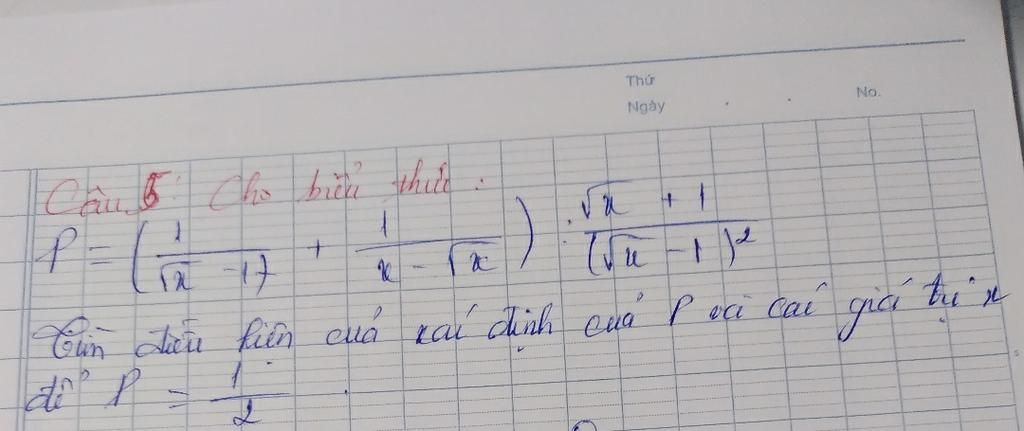 Thứ
Ngày . . No.
Câu 5: Cho biểu thức:
P = (1/(√x - 1) + 1/(x - √x)) : (√x + 1)/(√x - 1)²
Tìm điều kiện của xác định của P và các giá trị x
để P = 1/2.